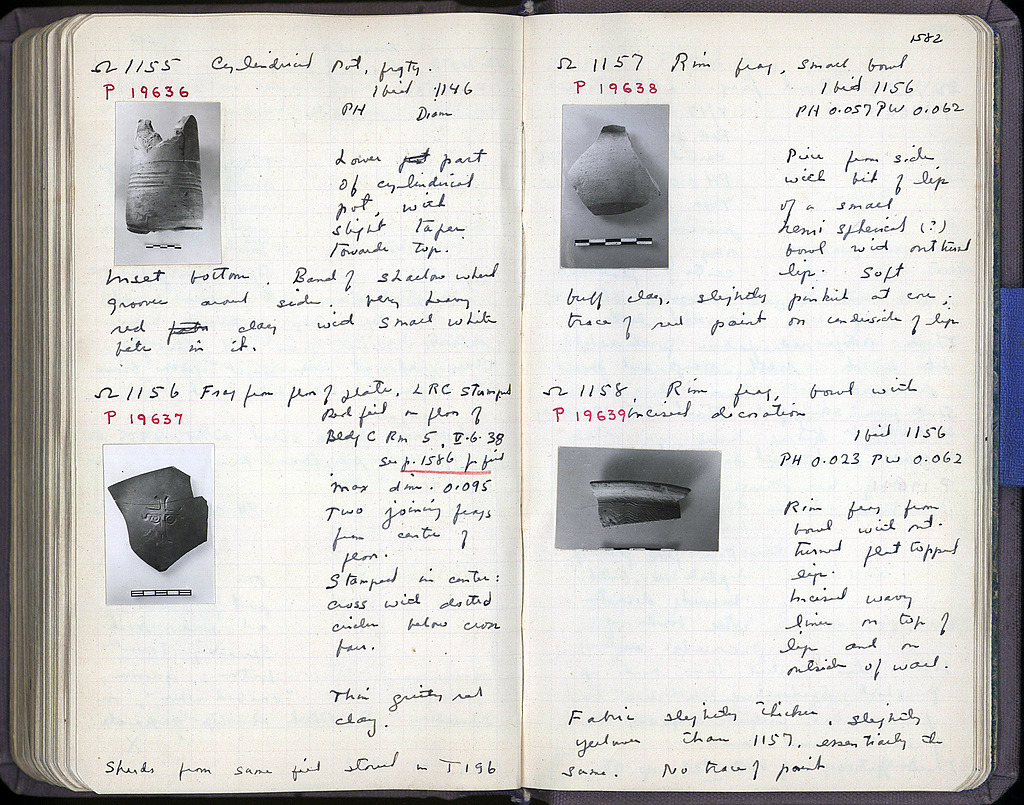 Ω 1155 Cylindrical Pot, frgty.
P 19636
Ibid 1146
PH Diam
Lower part
of cylindrical
pot, with
slight taper
towards top.
Inset bottom. Band of shallow wheel
grooves around side. Very heavy
red clay with small white
bits in it.
Ω 1156 Frag from floor of plate, LRC stamped
P 19637
Red fill on floor of
Bldg C Rm 5, II·6·38
see p. 1586 for fill
Max dim. 0.095
Two joining frags
from center of
floor.
Stamped in center:
cross with dotted
circles below cross
bars.
Thin gritty red
clay.
Sherds from same fill stored in T 196
1582
Ω 1157 Rim frag, small bowl
P 19638
Ibid 1156
PH 0.057 PW 0.062
Piece from side
with bit of lip
of a small
hemispherical (?)
bowl with outturned
lip. Soft
buff clay, slightly pinkish at core;
trace of red paint on underside of lip
Ω 1158, Rim frag, bowl with
P 19639 incised decoration
Ibid 1156
PH 0.023 PW 0.062
Rim frag from
bowl with out-
turned flat topped
lip.
Incised wavy
lines on top of
lip and on
outside of wall.
Fabric slightly thicker, slightly
yellower than 1157, essentially the
same. No trace of paint